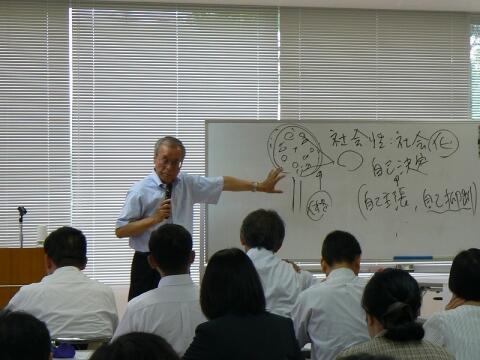 社会性:社会化
自己決定
(自己主張,自己抑制)